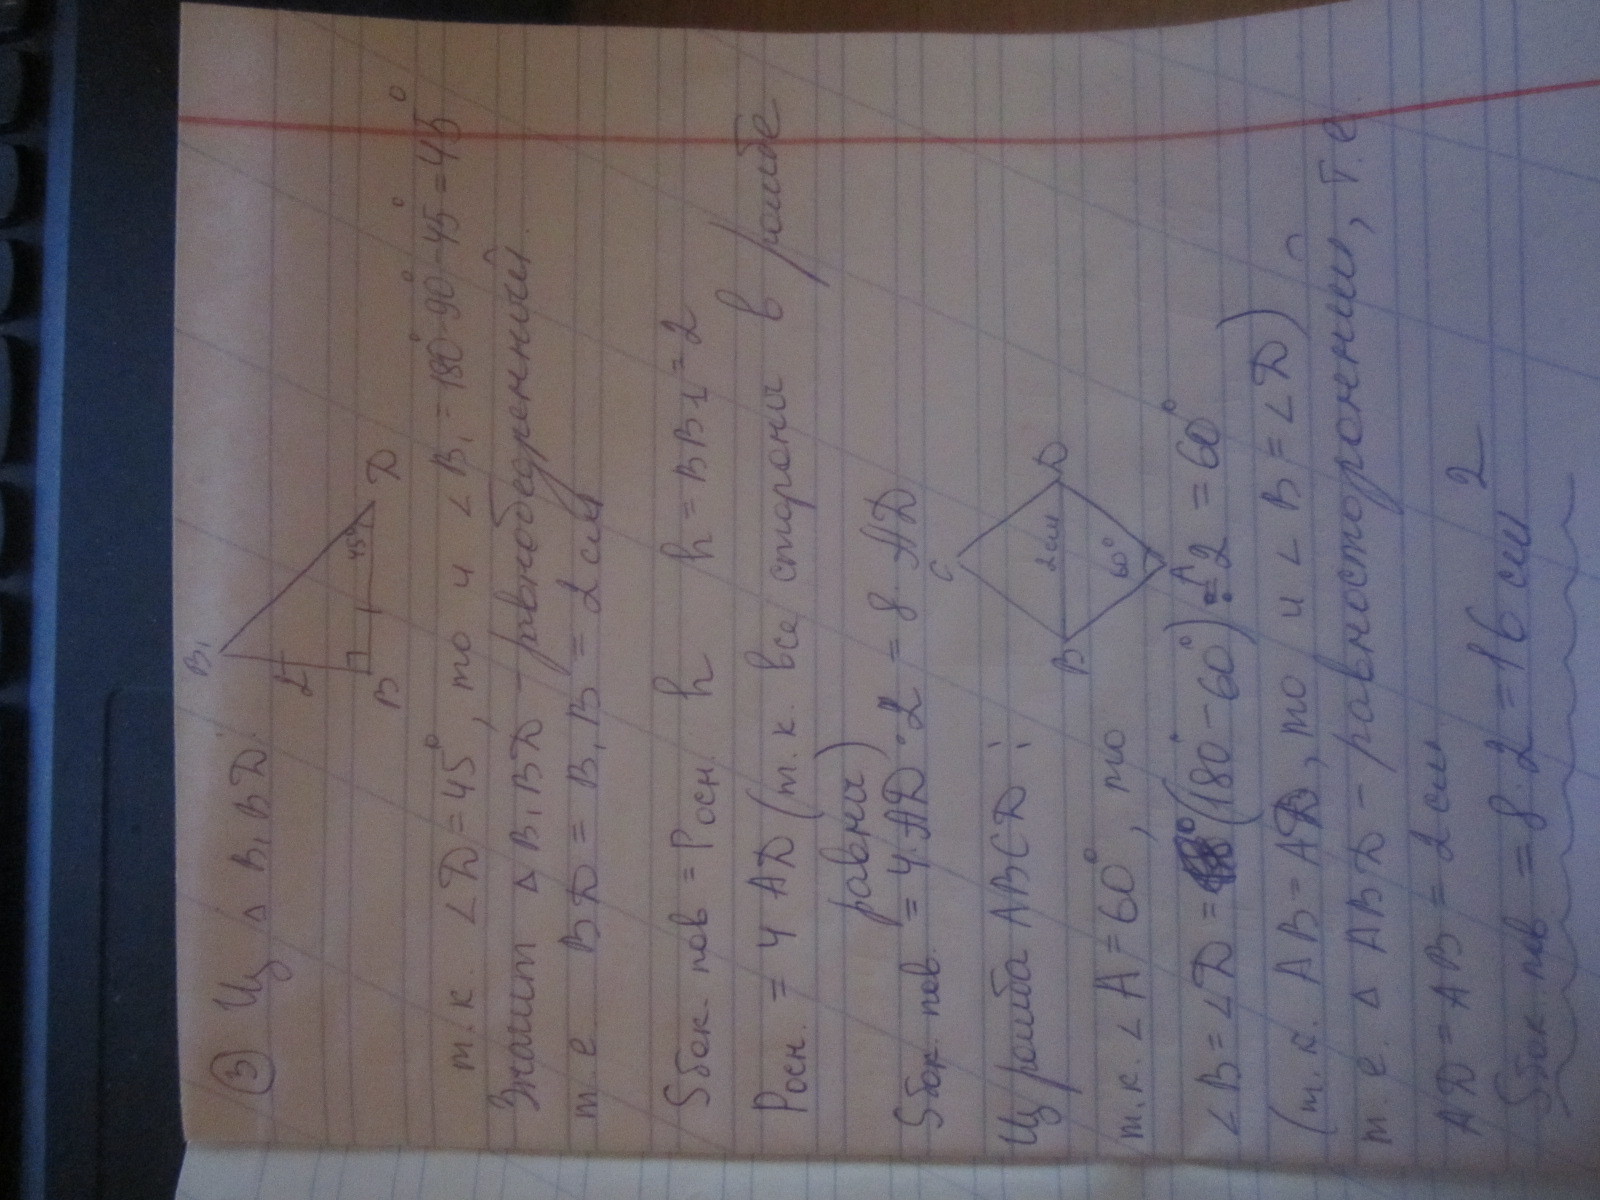 ③ Из △ B₁BD.
B₁
2
B
45°
D
т.к. ∠D=45°, то и ∠B₁=180°-90°-45°=45°
Значит △ B₁BD - равнобедренный.
т.е. BD = B₁B = 2 см
Sбок. пов = Pосн. h    h = BB1 = 2
Pосн. = 4 AD (т.к. все стороны в ромбе
равны)
Sбок. пов. = 4·AD·2 = 8·AD
Из ромба ABCD:
C
B
D
2см
60°
A
т.к. ∠A=60°, то
∠B=∠D= (180°-60°):2=60°
(т.к. AB=AD, то и ∠B=∠D)
т.е. △ ABD - равносторонний, т.е
AD=AB=2см
Sбок. пов = 8·2=16 см²